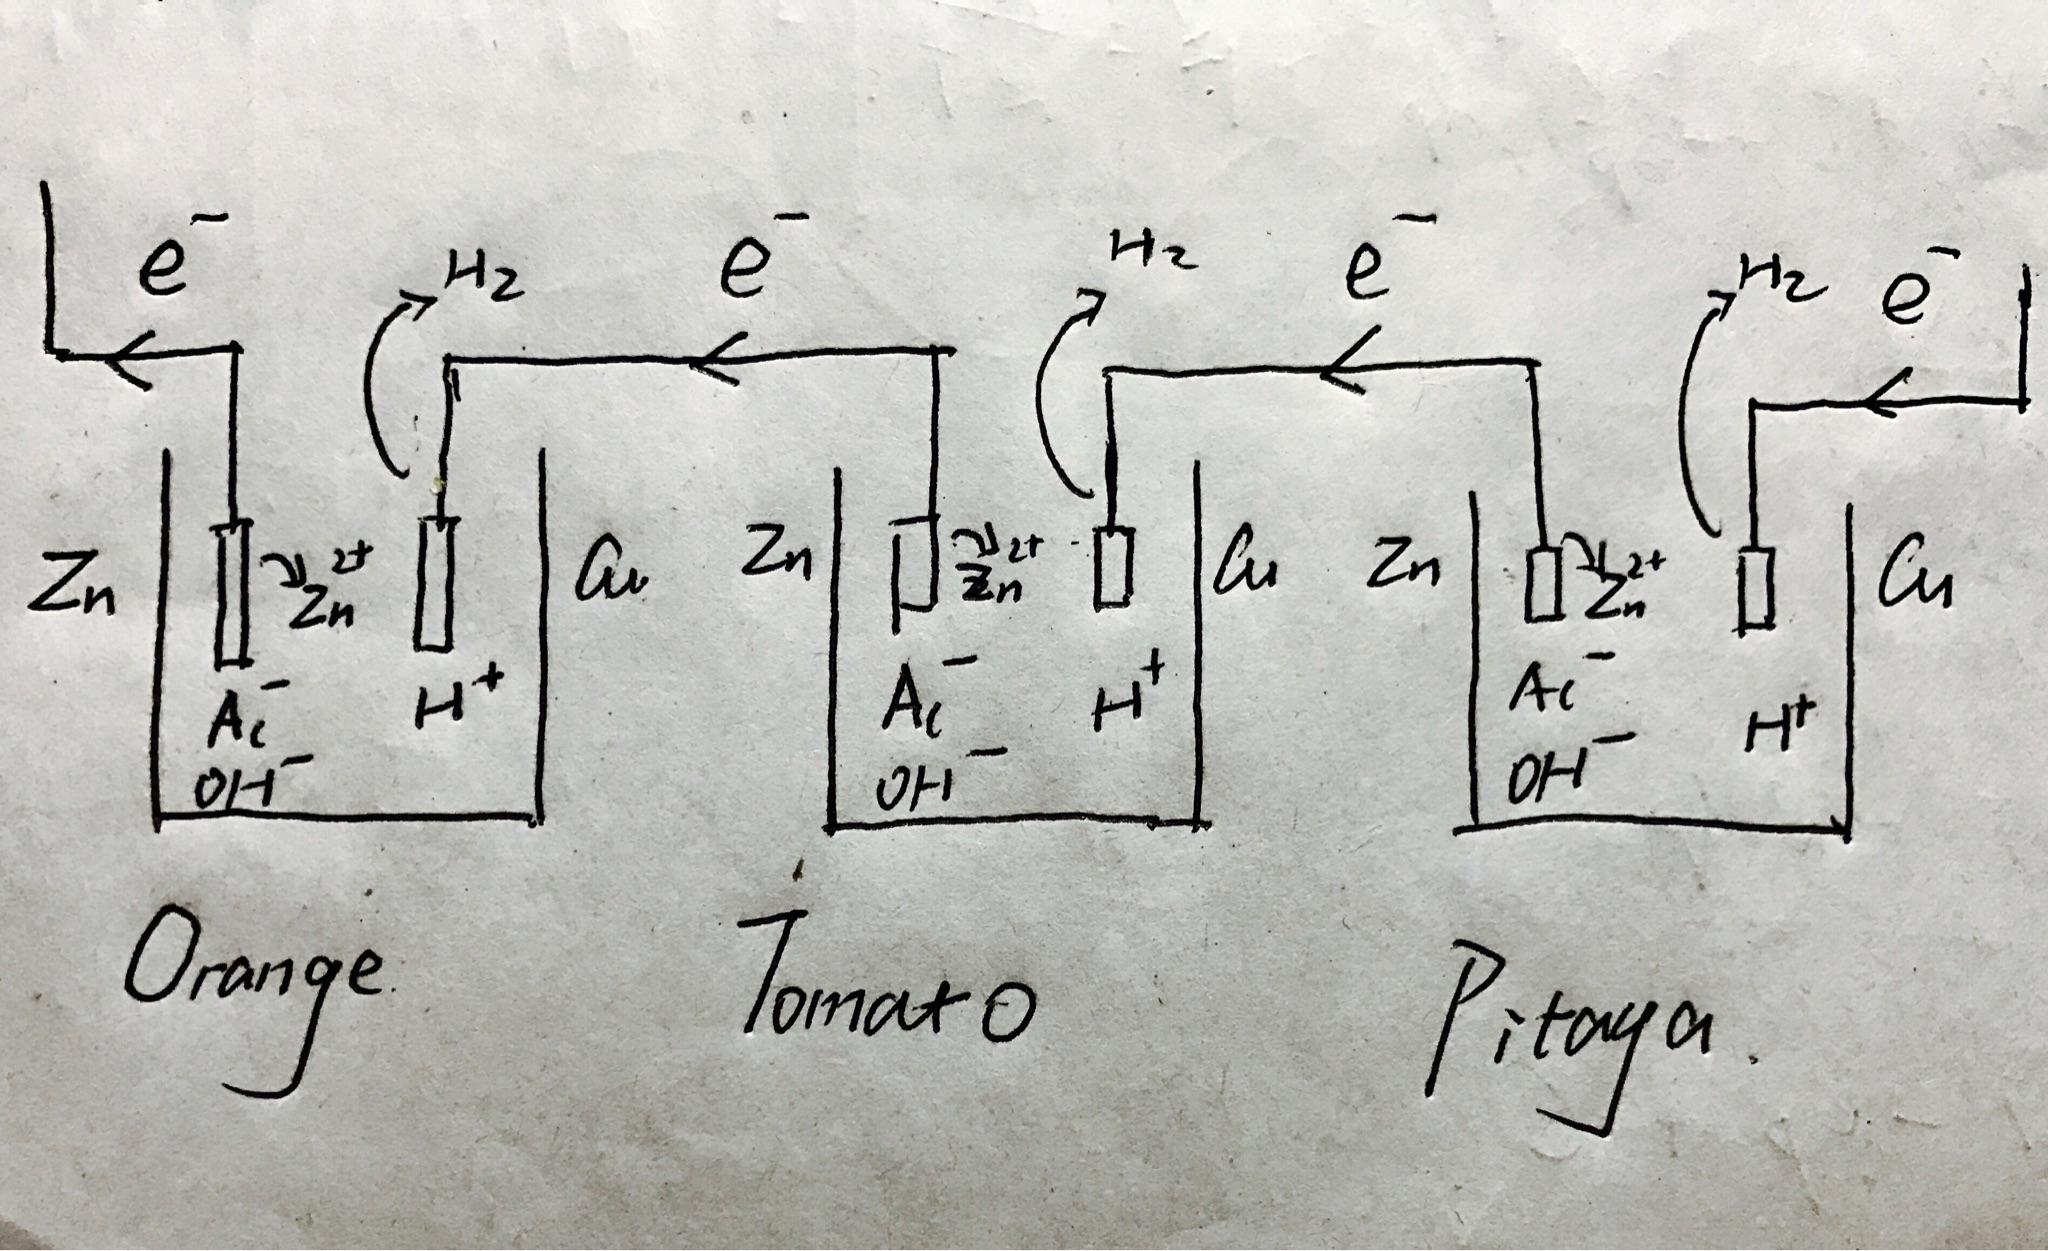 e⁻ H₂ e⁻ H₂ e⁻ H₂ e⁻
Zn Zn²⁺ Cu Zn Zn²⁺ Cu Zn Zn²⁺ Cu
Ac⁻ H⁺ Ac⁻ H⁺ Ac⁻ H⁺
OH⁻ OH⁻ OH⁻
Orange. Tomato Pitaya.